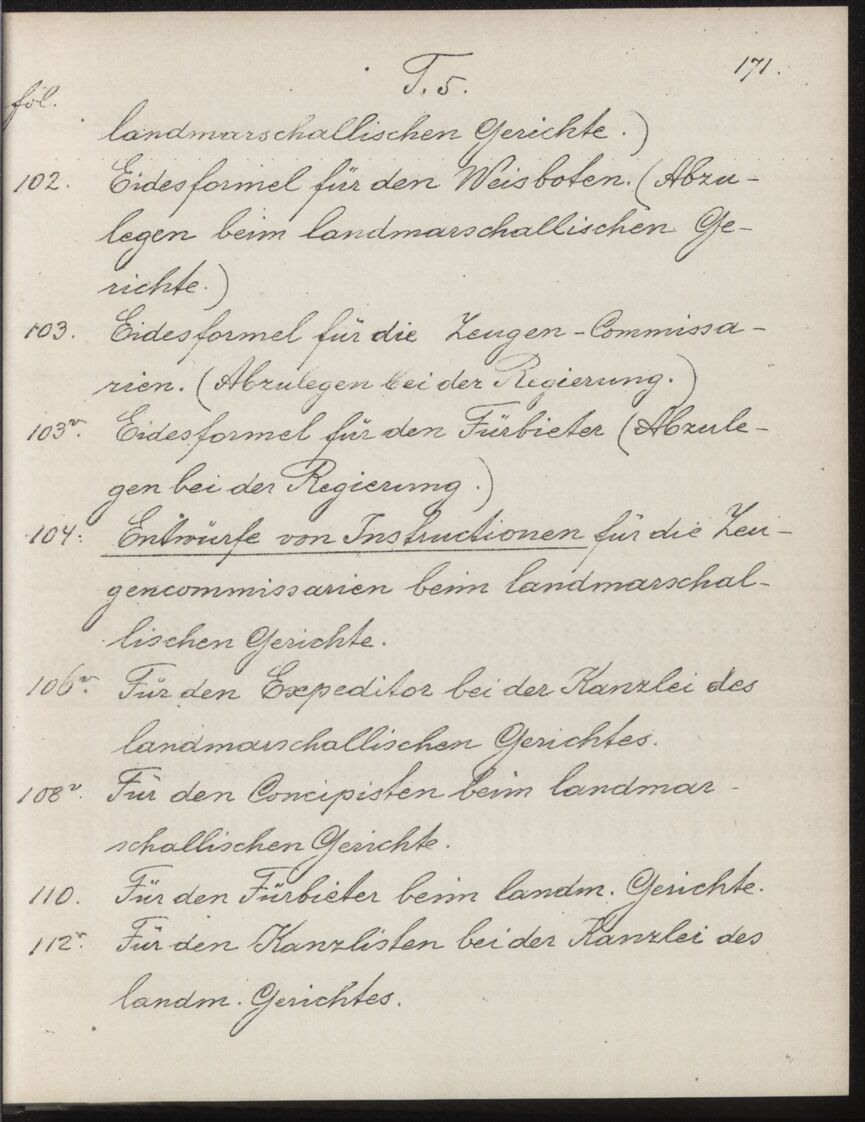 T. 5.
171.
fol.
landmarschallischen Gerichte.)
102. Eidesformel für den Weisboten. (Abzu-
legen beim landmarschallischen Ge-
richte.)
103. Eidesformel für die Zeugen-Commissa-
rien. (Abzulegen bei der Regierung.)
103v. Eidesformel für den Fürbieter (Abzule-
gen bei der Regierung.)
104. Entwürfe von Instructionen für die Zeu-
gencommissarien beim landmarschal-
lischen Gerichte.
106v. Für den Expeditor bei der Kanzlei des
landmarschallischen Gerichtes.
108v. Für den Concipisten beim landmar-
schallischen Gerichte.
110. Für den Fürbieter beim landm. Gerichte.
112v. Für den Kanzlisten bei der Kanzlei des
landm. Gerichtes.